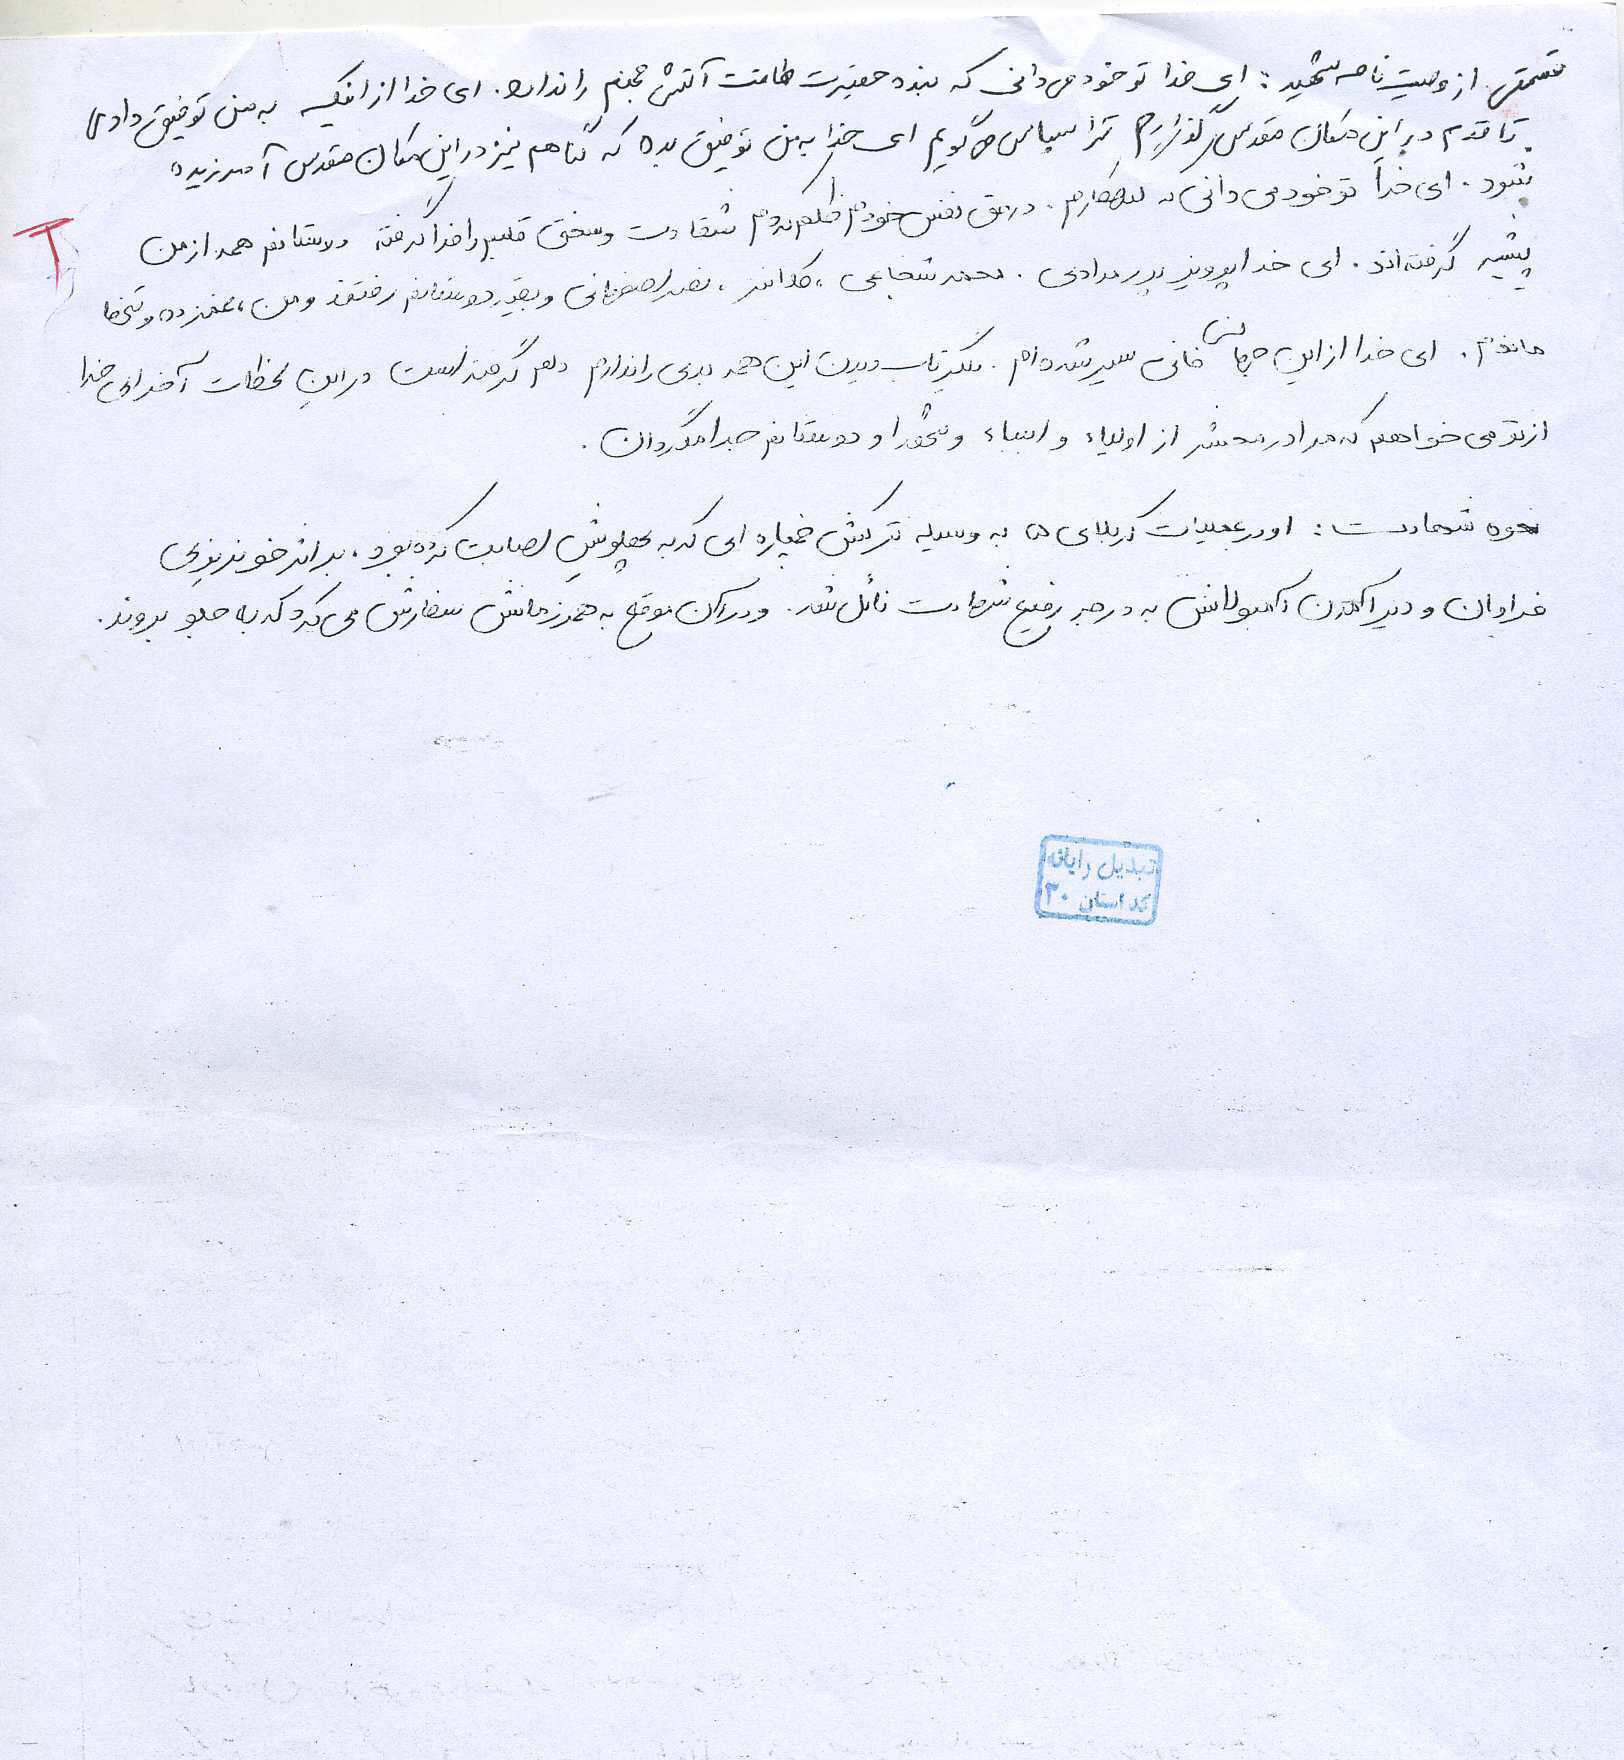 قسمتی از وصیت نامه شهید : ای خدا تو خود می دانی که بنده حقیرت طاقت آتش جهنم را ندارد. ای خدا از اینکه به من توفیق دادی
تا قدم در این مکان مقدس بگذارم ترا سپاس می گویم ای خدا به من توفیق بده که گناهم نیز در این مکان مقدس آمرزیده
شود . ای خدا تو خود می دانی که گناهکارم . در حق نفس خودم ظلم کردم شقاوت و سختی قلبم را فرا گرفته دوستانم همه از من
پیشی گرفته اند . ای خدا پرویز پیرمرادی . محمد شجاعی ، ، نصر اصفهانی و بقیه دوستانم رفتند و من ، غمزده و تنها
ماندم . ای خدا از این جهان فانی سیر شده ام . دیگر تاب دیدن این همه بدی را ندارم دلم گرفته است در این لحظات آخر ای خدا
از تو می خواهم که مرا در محشر از اولیاء و انبیاء و شهدا و دوستانم جدا مگردان .
نحوه شهادت : او در عملیات کربلای ۵ به وسیله ترکش خمپاره ای که به پهلویش اصابت کرده بود ، بر اثر خونریزی
فراوان و دیر آمدن آمبولانس به درجه رفیع شهادت نائل شد . و در آن موقع به همرزمانش سفارش می کرد که به جلو بروند .
تبدیل رایانه
کد استان ۳۰